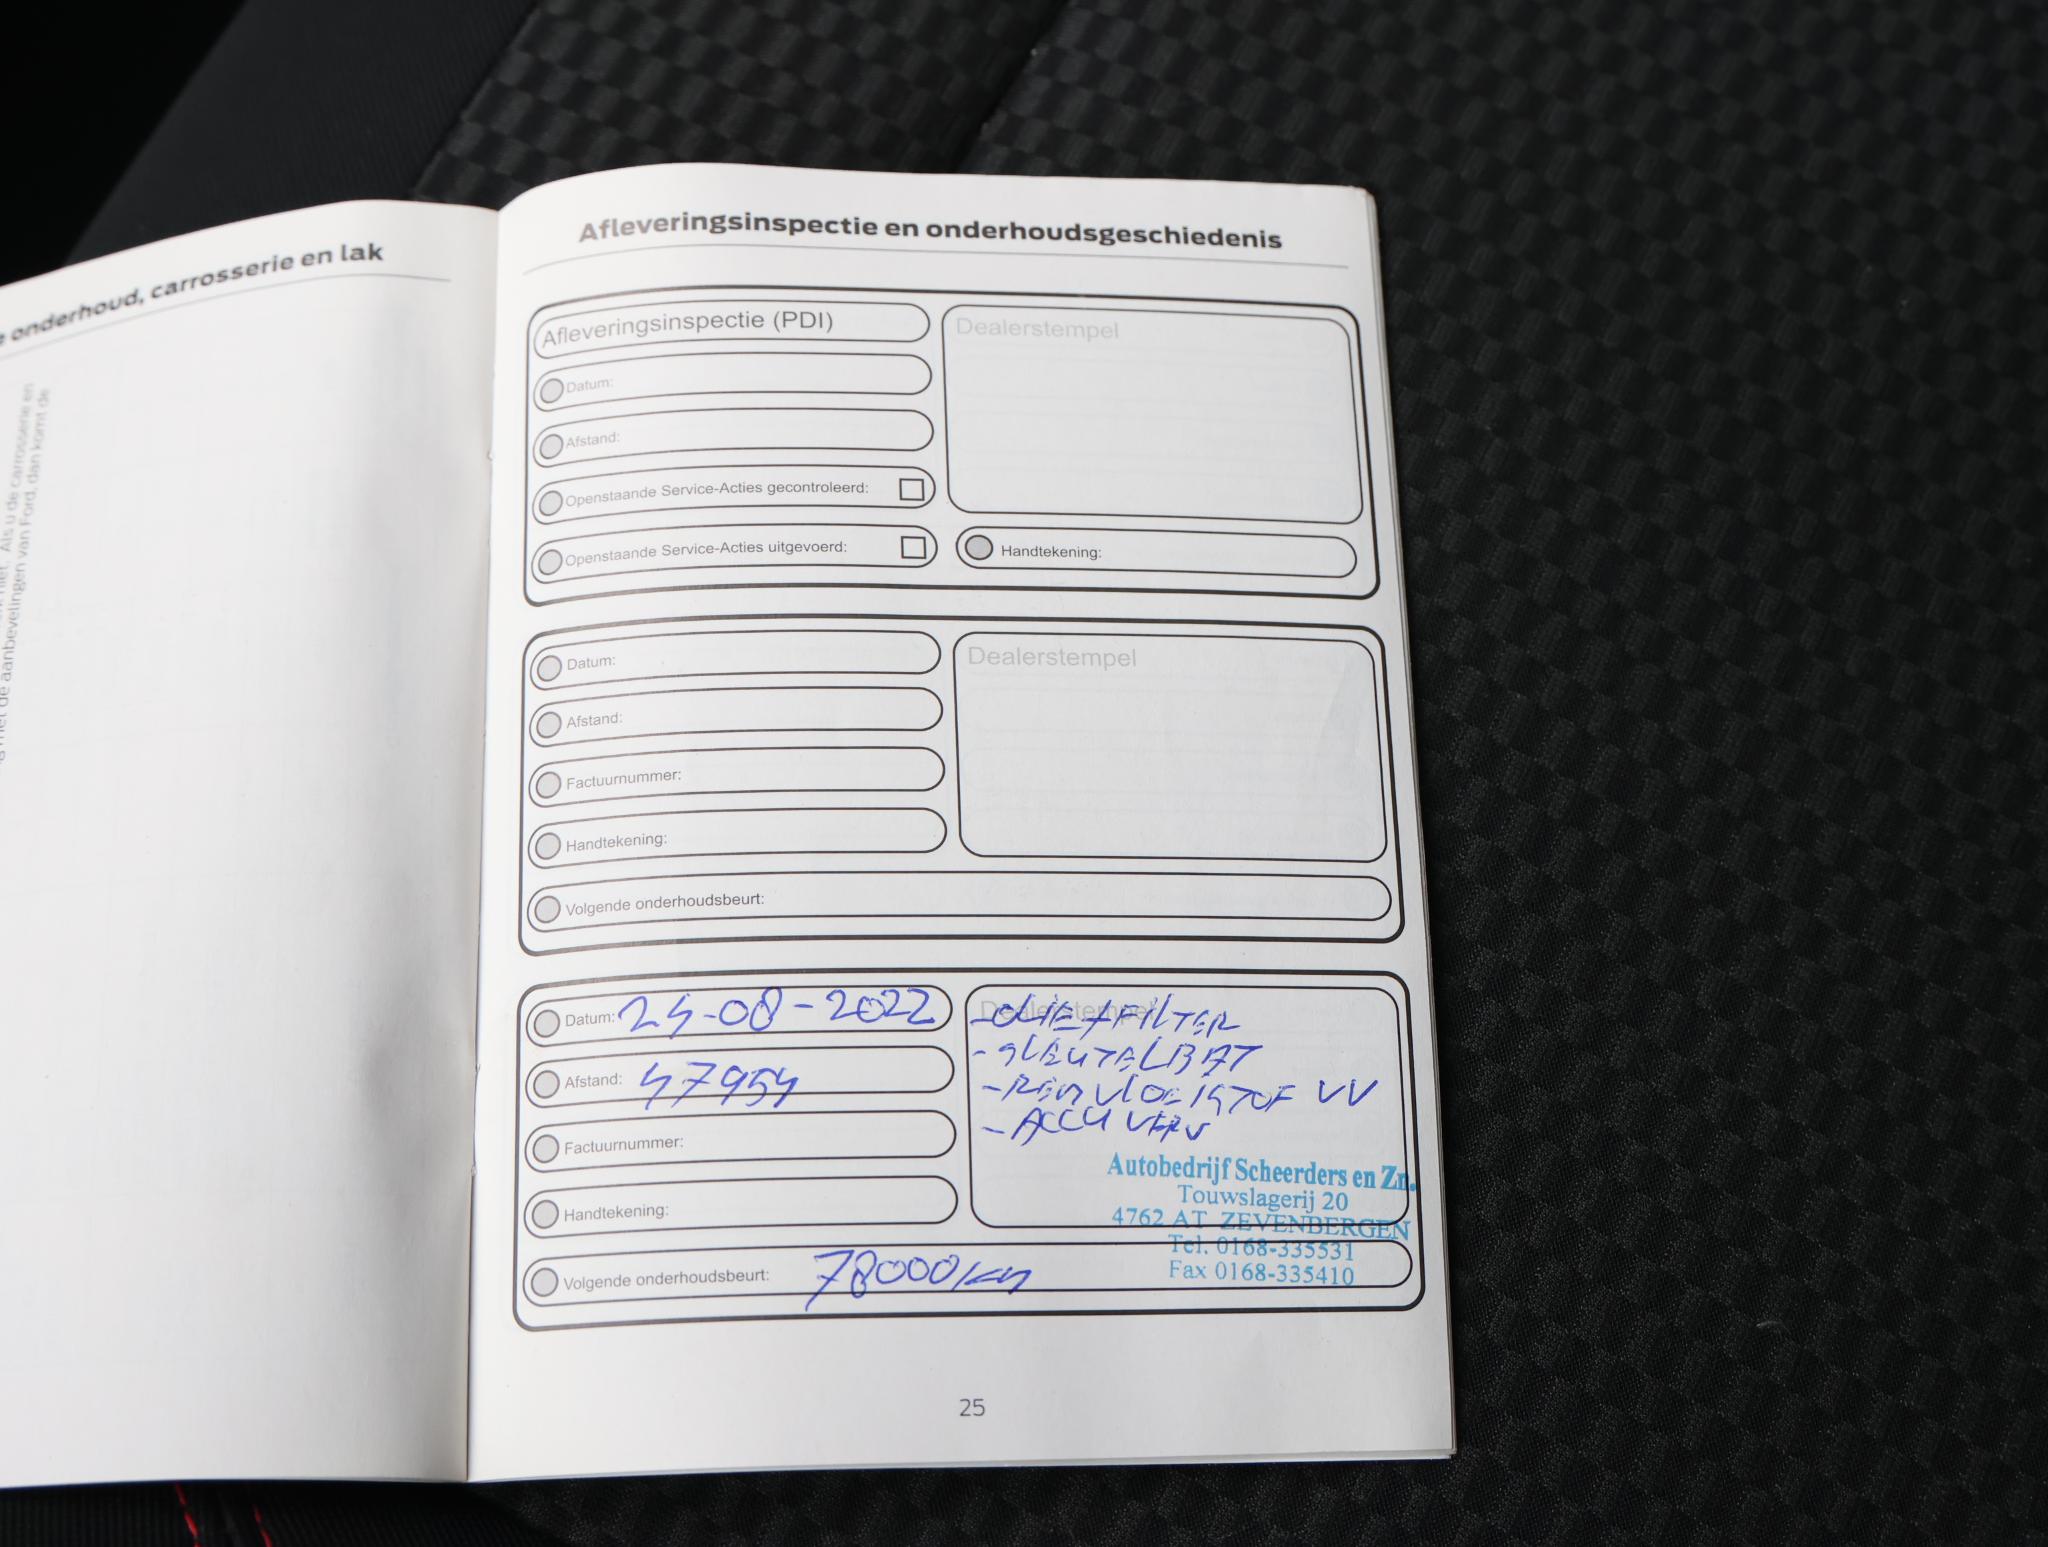 onderhoud, carrosserie en lak
Als u de carrosserie en
de aanbevelingen van Ford, dan komt de
Afleveringsinspectie en onderhoudsgeschiedenis
Afleveringsinspectie (PDI)
Datum:
Afstand:
Openstaande Service-Acties gecontroleerd:
Openstaande Service-Acties uitgevoerd:
Dealerstempel
Handtekening:
Datum:
Afstand:
Factuurnummer:
Handtekening:
Volgende onderhoudsbeurt:
Dealerstempel
Datum: 24-08-2022
Afstand: 47954
Factuurnummer:
Handtekening:
Volgende onderhoudsbeurt: 78000km
Dealerstempel
- OLIE + FILTER
- SLEUTELBAT
- REMVLOEISTOF VV
- ACCU VERV
Autobedrijf Scheerders en Zn.
Touwslagerij 20
4762 AT ZEVENBERGEN
Tel. 0168-335531
Fax 0168-335410
25